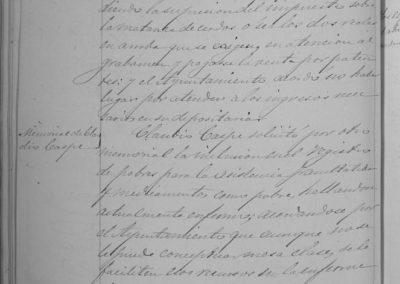 diendo la supresion del impuesto sobre
la matanza de cerdos o sea los dos reales
en arroba que se exigen, en atencion al
grabamen y pagarse la renta por paten
tes: y el Ayuntamiento acordó no haber
lugar por atender a los ingresos nece
sarios en su depositaria.
Memorial de Clau
dio Caspe.
Claudio Caspe solicitó por otro
memorial la inclusion en el registro
de pobres para la asistencia facultativa
y medicamentos como pobre hallandose
actualmente enfermo, acordandose por
el Ayuntamiento que aunque no se
le puede conceptuar en esa clase, se le
faciliten los recursos de la enferme